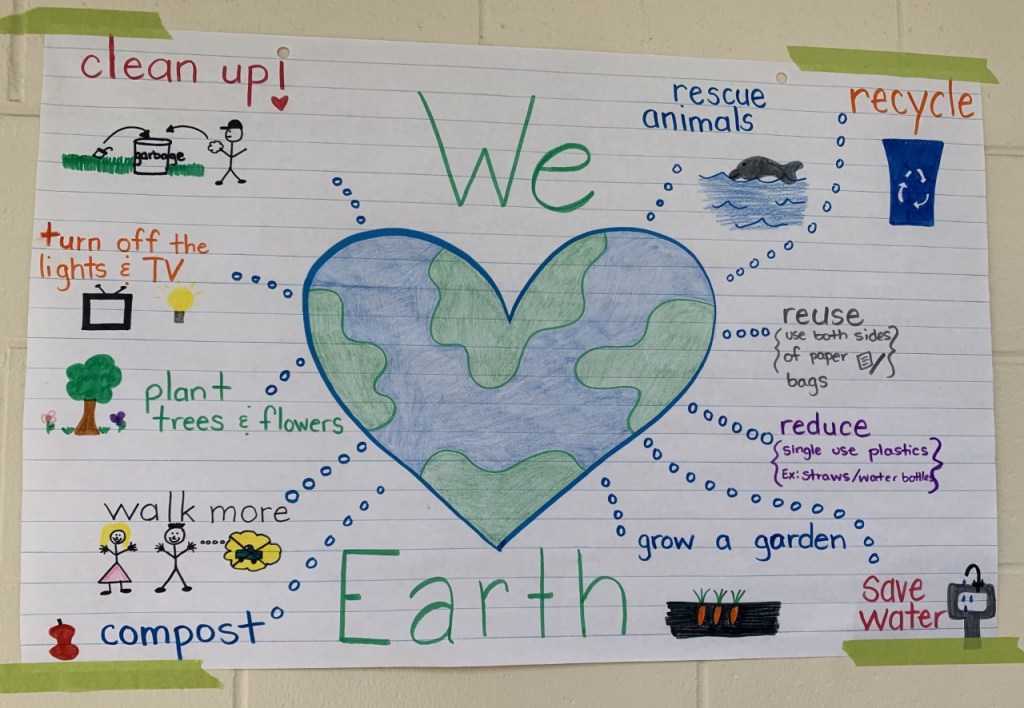 clean up!
garbage
We
rescue
animals
recycle
turn off the
lights & TV
plant
trees & flowers
walk more
compost
Earth
reuse
{use both sides}
of paper
bags
reduce
{single use plastics}
Ex: straws/water bottles
grow a garden
save
water